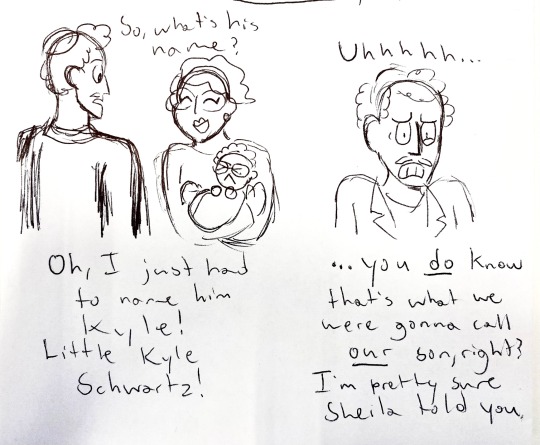 So, what's his
name?
Oh, I just had
to name him
Kyle!
Little Kyle
Schwartz!
Uhhhhh...
...you do know
that's what we
were gonna call
our son, right?
I'm pretty sure
Sheila told you.